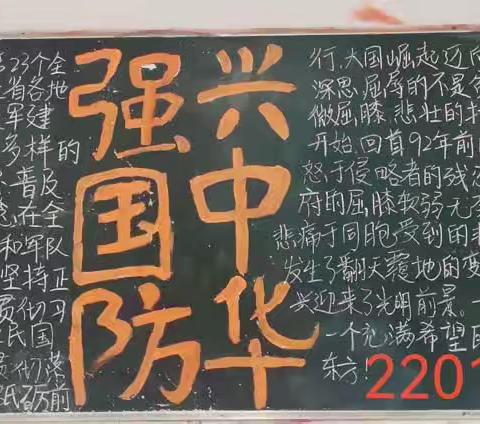 23个全
省各地
军建
多样的
普及
在全
和军队
坚持正
贯彻习
民国
贯彻落
万前
强国防
兴中华
行,大国崛起迈向
深思,屈辱的不是
做屈膝,悲壮的
开始,回首92年前
怒于侵略者的残
府的屈膝软弱无
悲痛于同胞受到的
发生了翻天覆地的变
兴迎来了光明前景。一
一个充满希望的
东方!
2201